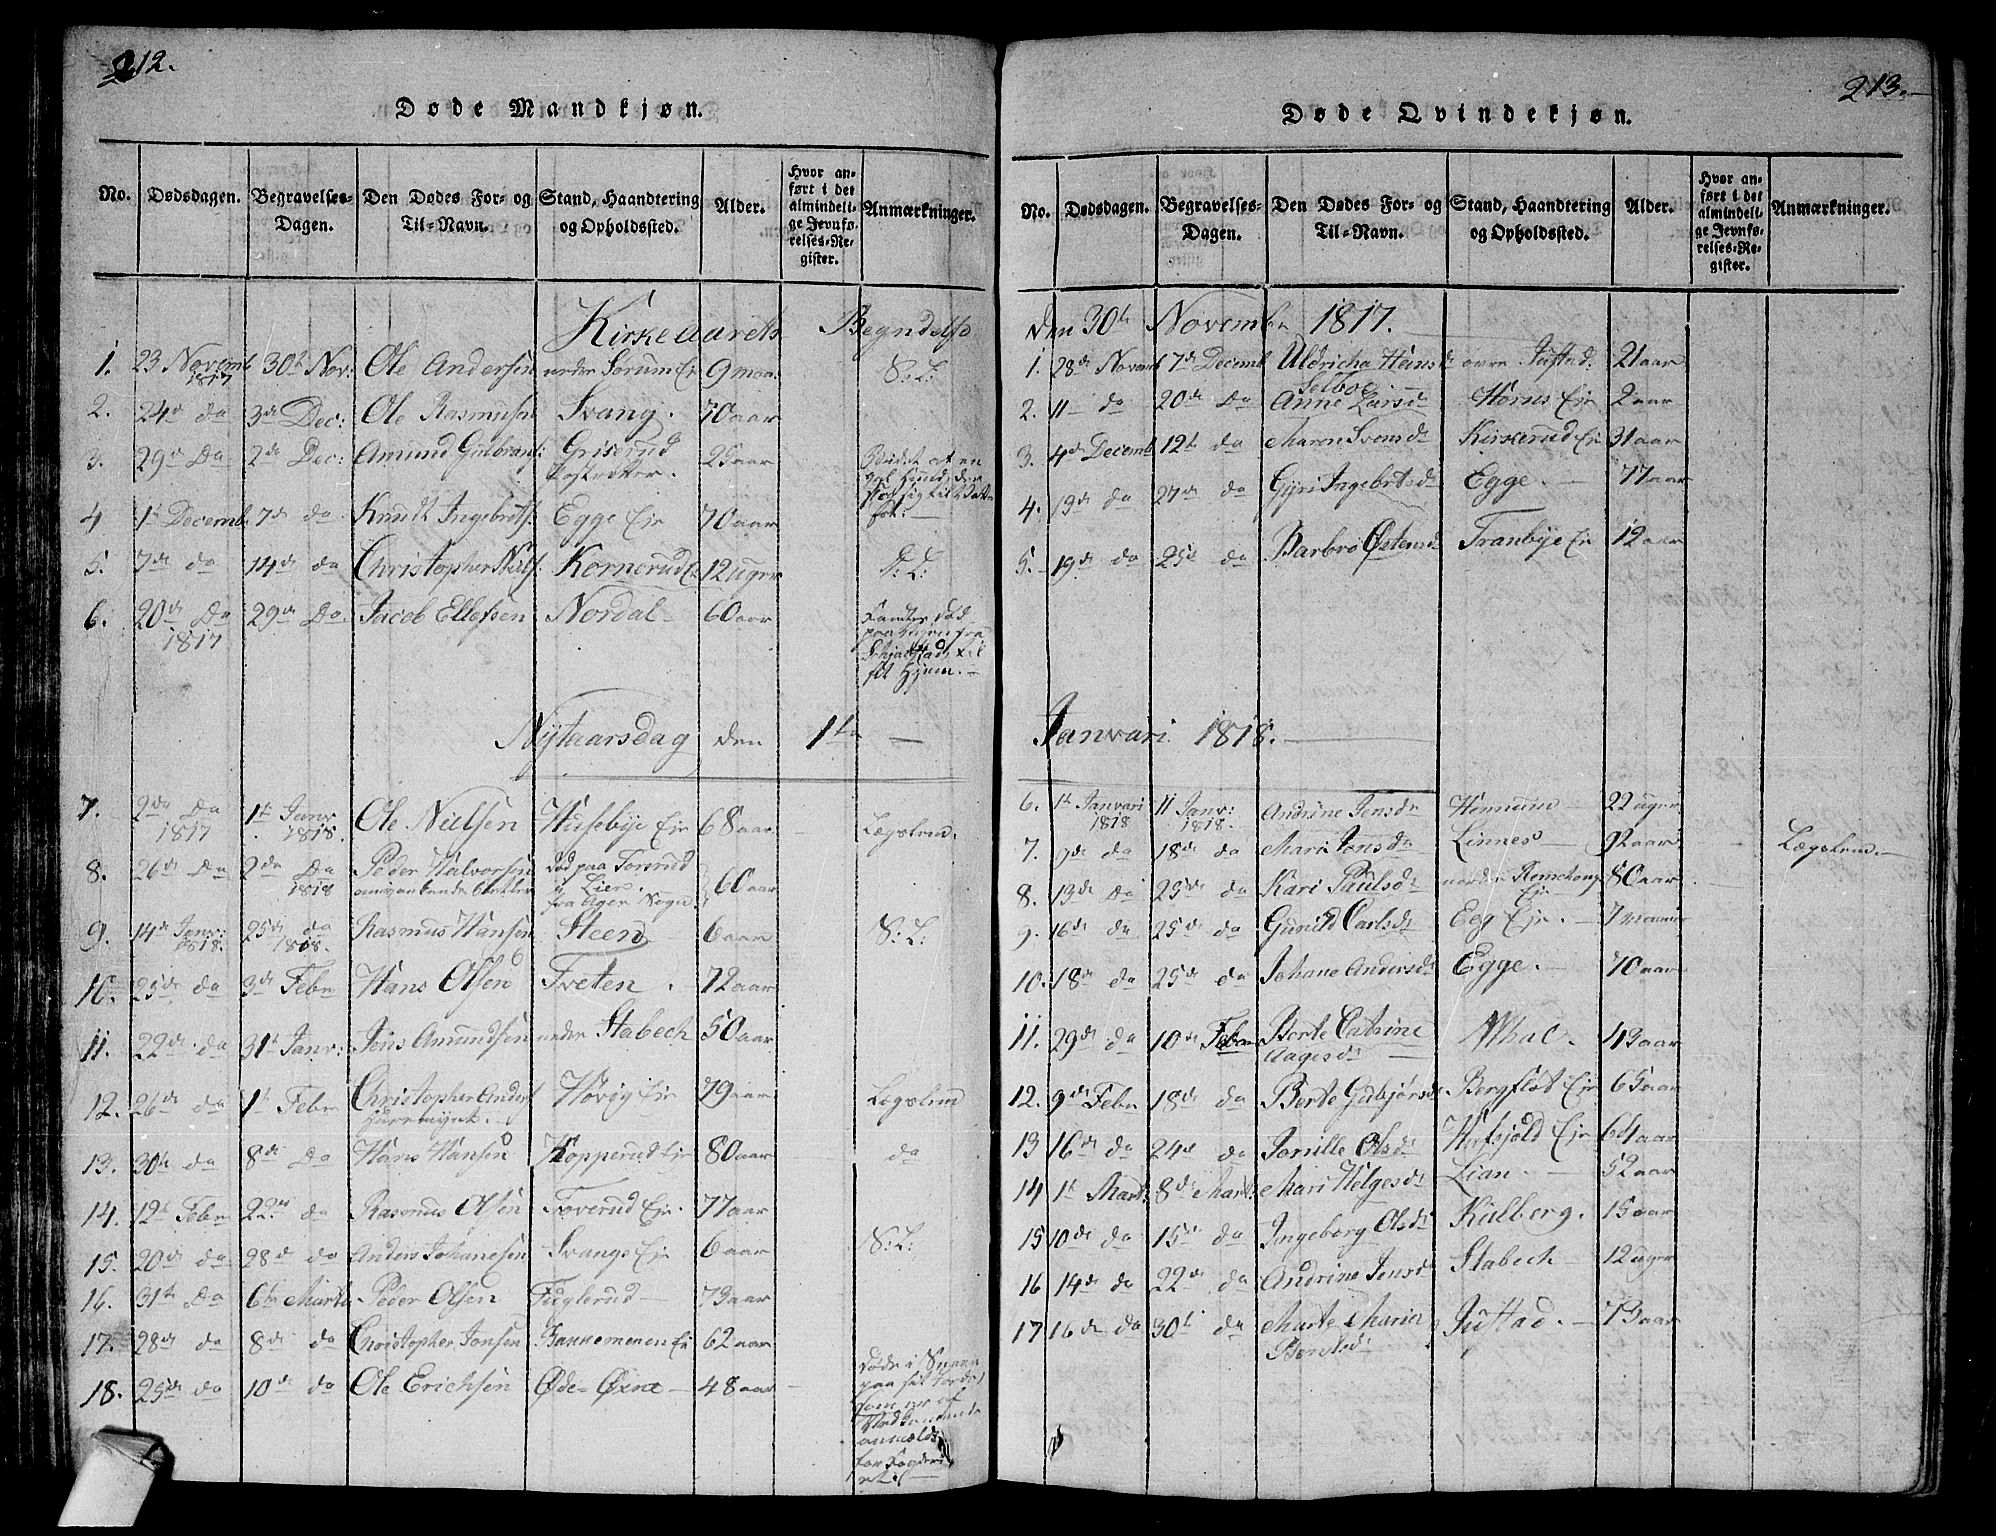 212.
Døde Mandkjøn.
No. Dødsdagen. Begravelses-Dagen. Den Dødes For- og Til-Navn. Stand, Haandtering og Opholdssted. Alder. Hvor anført i det almindelige Jevnførelses-Register. Anmærkninger.
Kirkeaarets Begyndelse
1. 23 Novemb 1817 30t Nov: Ole Andersen under Sorum Eie 9 maa: S: L:
2. 24d da 3de Dec: Ole Rasmusen Svang. 70 aar
3. 29d Da 2de Dec: Amund Gulbrans: Griserud 25 aar Bidet at en gal Hund, der
4 1t Decemb 7de da Knudt IngebretS. Egge Eie 70 aar
5. 7de da 14de da Christopher Niels: Kornerud Eie 12 uger S: L:
6. 20de Da 1817 29de Da. Jacob Ellefsen Nordal 60 aar Funden død
Nytaarsdag den 1te
7. 2de Da 1817 1t Janv 1818. Ole Nielsen Husebye Eie 68 aar Lægslem.
8. 26de Da 2de Da 1818 Peder Halvorsen død paa Foverud i Lier fra Ager Sogn 60 aar
9. 14de Janv: 1818. 25de da 1818. Rasmus Hansen Steen 6 aar S: L:
10. 25de da 3de Febr Hans Olsen Tveten . 72 aar
11. 22de da 31t Janv: Jens Amundsen under Stabech 50 aar
12. 26de da 1t Febr Christopher Anders Høvig Eie 79 aar Lægslem
13. 30te da 8de Da Hans Hansen Kopperud Eie 80 aar da
14. 12t Febr 22de da Rasmus Olsen Foverud Eie. 77 aar
15. 20de da 28d da Anders Johanesen Svangs Eie 6 aar S: L:
16. 31te Da 6te Marts Peder Olsen Fuglerud 73 aar
17. 28de da 8de da Christopher Jonsen Bakkemenen Eie 62 aar
18. 25de da 10de da Ole Erichsen Øde-Øxne 48 aar Døde i Sneen paa
213.
Døde Qvindekjøn.
No. Dødsdagen. Begravelses-Dagen. Den Dødes For- og Til-Navn. Stand, Haandtering og Opholdssted. Alder. Hvor anført i det almindelige Jevnførelses-Register. Anmærkninger.
den 30te Novembr 1817.
1. 28de Novemb 7de Decemb Uldricha Hansd Selboe øvre Justad: 21 aar
2. 11 da 20de Da Anne Larsd Hørns Eie 2 aar
3. 4de Decemb 12te da Maren Svensd Kirkerud Eie 31 aar
4. 19de da 27de da Gyri Ingebretsd Egge. 77 aar
5. 19de da 25d da Barbro Østensd Tranbye Eie 12 aar
Janvari 1818.
6. 1t Janvari 1818 11 Janv: 1818. Andrine Jensd Hennum 22 uger
7. 9de da 18de da Mari Jonsd Linnes 92 aar Lægslem.
8. 13de Da 25de da Kari Paulsd nordre Renschoug Eie 80 aar
9. 16de da 25de da Gunild Carlsd Egg Eie. 7 maaner
10. 18de da 25de da Johane Andersd Egge. 70 aar
11. 29de da 10de Febr Berte Catrine Aagesd Hval. 43 aar
12. 9de Febr 18de da Berte Gubjørsd Bergflot Eie 65 aar
13 16de da 24d da Pernille Olsd Eie 64 aar
14 1t Marts 8de Marts Mari Helgesd Lian. 52 aar
15 10de da 15de da Ingeborg Olsd Kulberg. 15 aar
16 14de da 22de da Andrine Jensd Stabech 12 uger
17 16de da 30t da Marte Maria Berntsd Justad. 73 aar